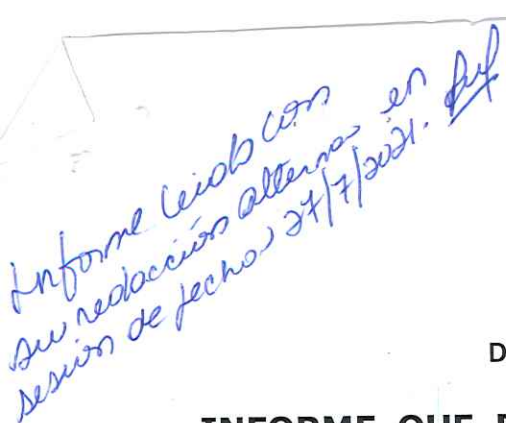 Informe leido con
su redacción alterna en
sesión de fecha 27/7/2021.
D
INFORME QUE